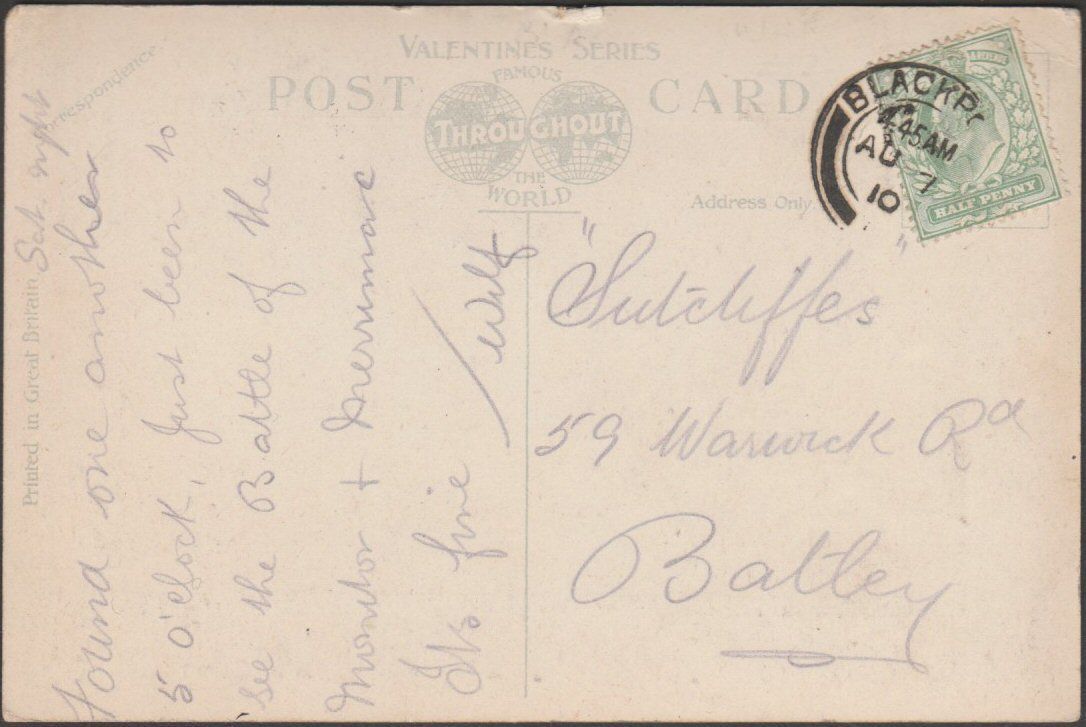 VALENTINES SERIES
POST CARD
FAMOUS
THROUGHOUT
THE
WORLD
Correspondence.
Address Only.
Printed in Great Britain
HALF PENNY
BLACKP
4.45AM
AU 7
10
Sat. night
Found one another
5 O'clock, Just been to
see the Battle of the
Monitor + Merrimac
Its fine / Wilf
"Sutcliffes"
59 Warwick Rd
Batley